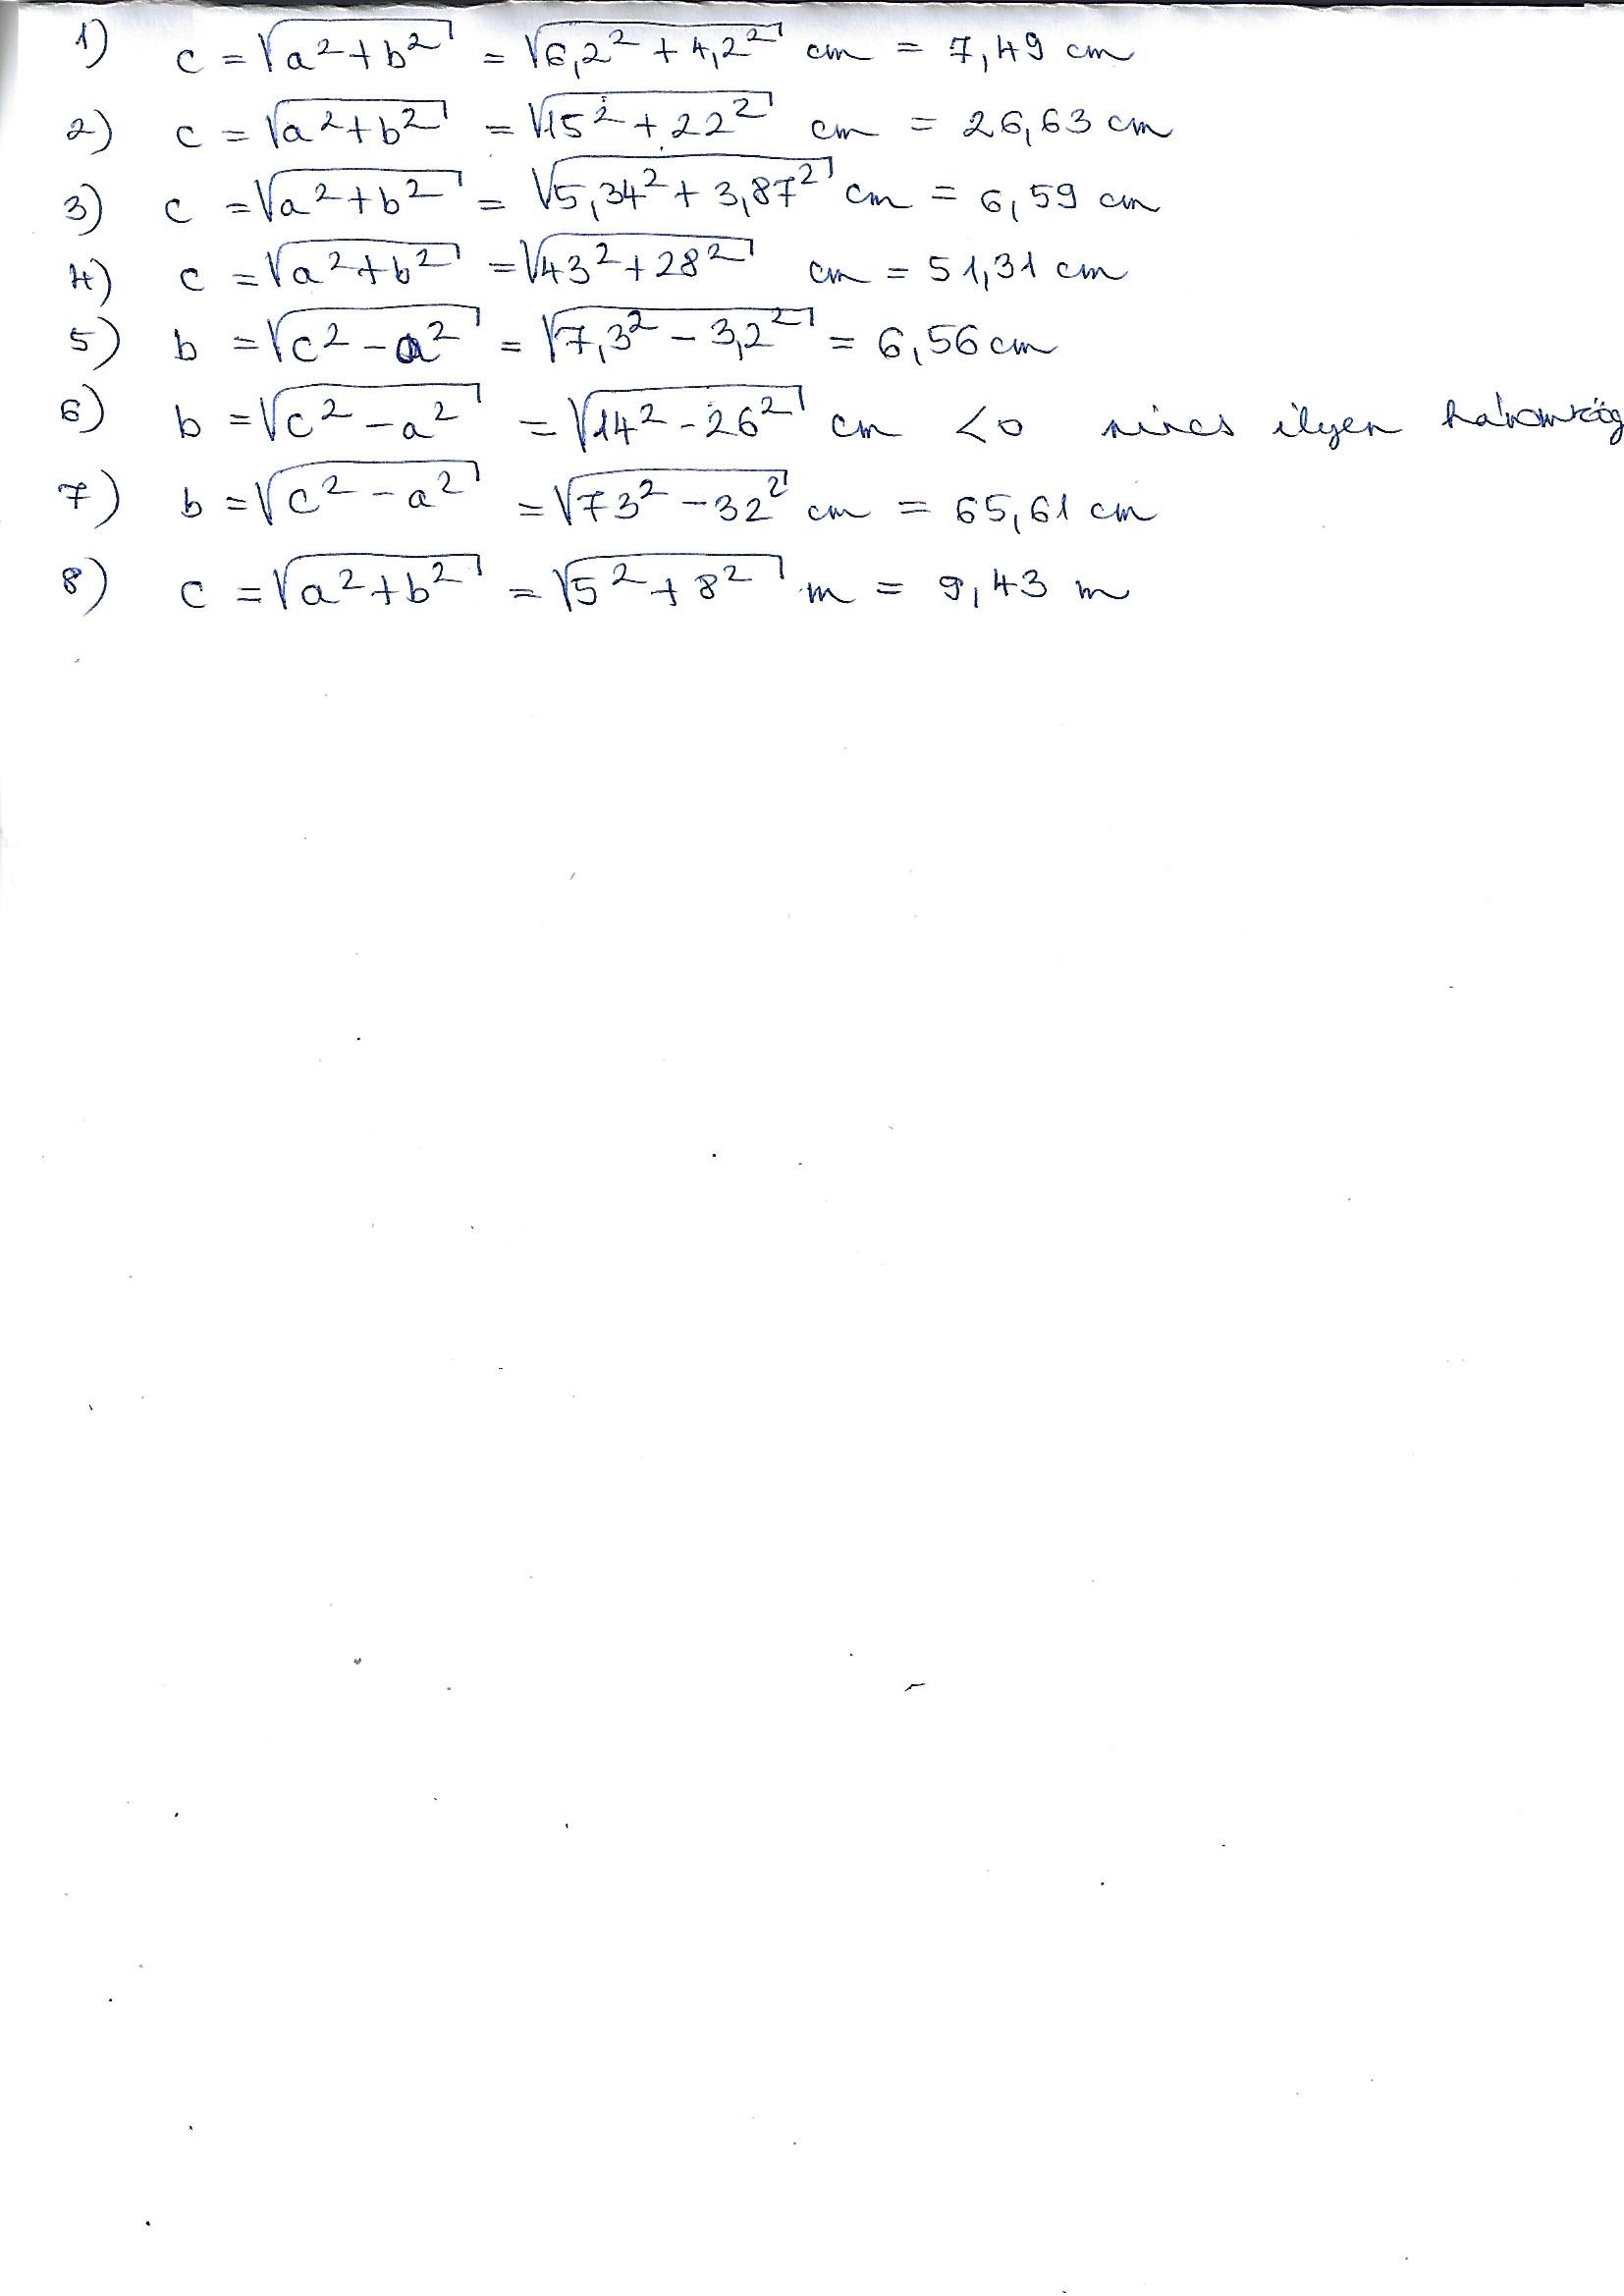 1) c = √(a² + b²) = √(6,2² + 4,2²) cm = 7,49 cm
2) c = √(a² + b²) = √(15² + 22²) cm = 26,63 cm
3) c = √(a² + b²) = √(5,34² + 3,87²) cm = 6,59 cm
4) c = √(a² + b²) = √(43² + 28²) cm = 51,31 cm
5) b = √(c² - a²) = √(7,3² - 3,2²) = 6,56 cm
6) b = √(c² - a²) = √(14² - 26²) cm < 0 nincs ilyen háromszög
7) b = √(c² - a²) = √(73² - 32²) cm = 65,61 cm
8) c = √(a² + b²) = √(5² + 8²) m = 9,43 m